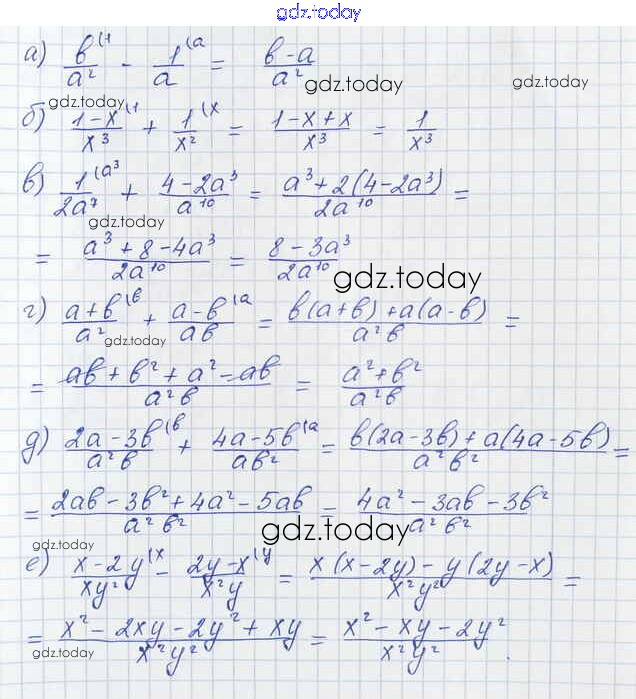 gdz.today
а) в/a² (1 − 1/a (a = (в−a)/a²
gdz.today
gdz.today
gdz.today
б) (1−x)/x³ (1 + 1/x² (x = (1−x+x)/x³ = 1/x³
в) 1/2a⁷ (a³ + (4−2a³)/a¹⁰ = (a³+2(4−2a³))/2a¹⁰ =
gdz.today
= (a³+8−4a³)/2a¹⁰ = (8−3a³)/2a¹⁰
gdz.today
г) (a+в)/a² (в + (a−в)/aв (a = (в(a+в)+a(a−в))/a²в =
gdz.today
= (aв+в²+a²−aв)/a²в = (a²+в²)/a²в
д) (2a−3в)/a²в (в + (4a−5в)/aв² (a = (в(2a−3в)+a(4a−5в))/a²в² =
= (2aв−3в²+4a²−5aв)/a²в² = (4a²−3aв−3в²)/a²в²
gdz.today
gdz.today
е) (x−2y)/xy² (x − (2y−x)/x²y (y = (x(x−2y)−y(2y−x))/x²y² =
= (x²−2xy−2y²+xy)/x²y² = (x²−xy−2y²)/x²y².
gdz.today